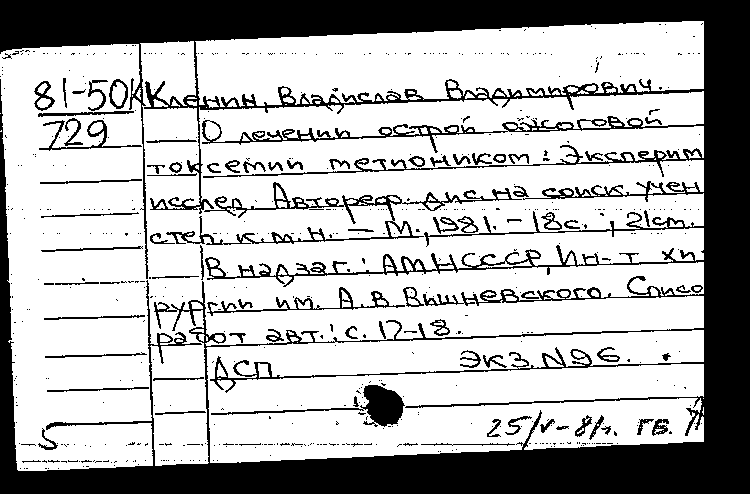 81-50К Кленин, Владислав Владимирович.
729 О лечении острой ожоговой
токсемии метиоником: Эксперим
исслед. Автореф. дис. на соиск. учен
степ. к.м.н. – М., 1981. – 18с. ; 21см.
В надзаг.: АМН СССР, Ин-т хи-
рургии им. А.В Вишневского. Списо
работ авт.: с. 17-18.
ДСП. Экз. N96.
25/V-81г. ГБ.
5